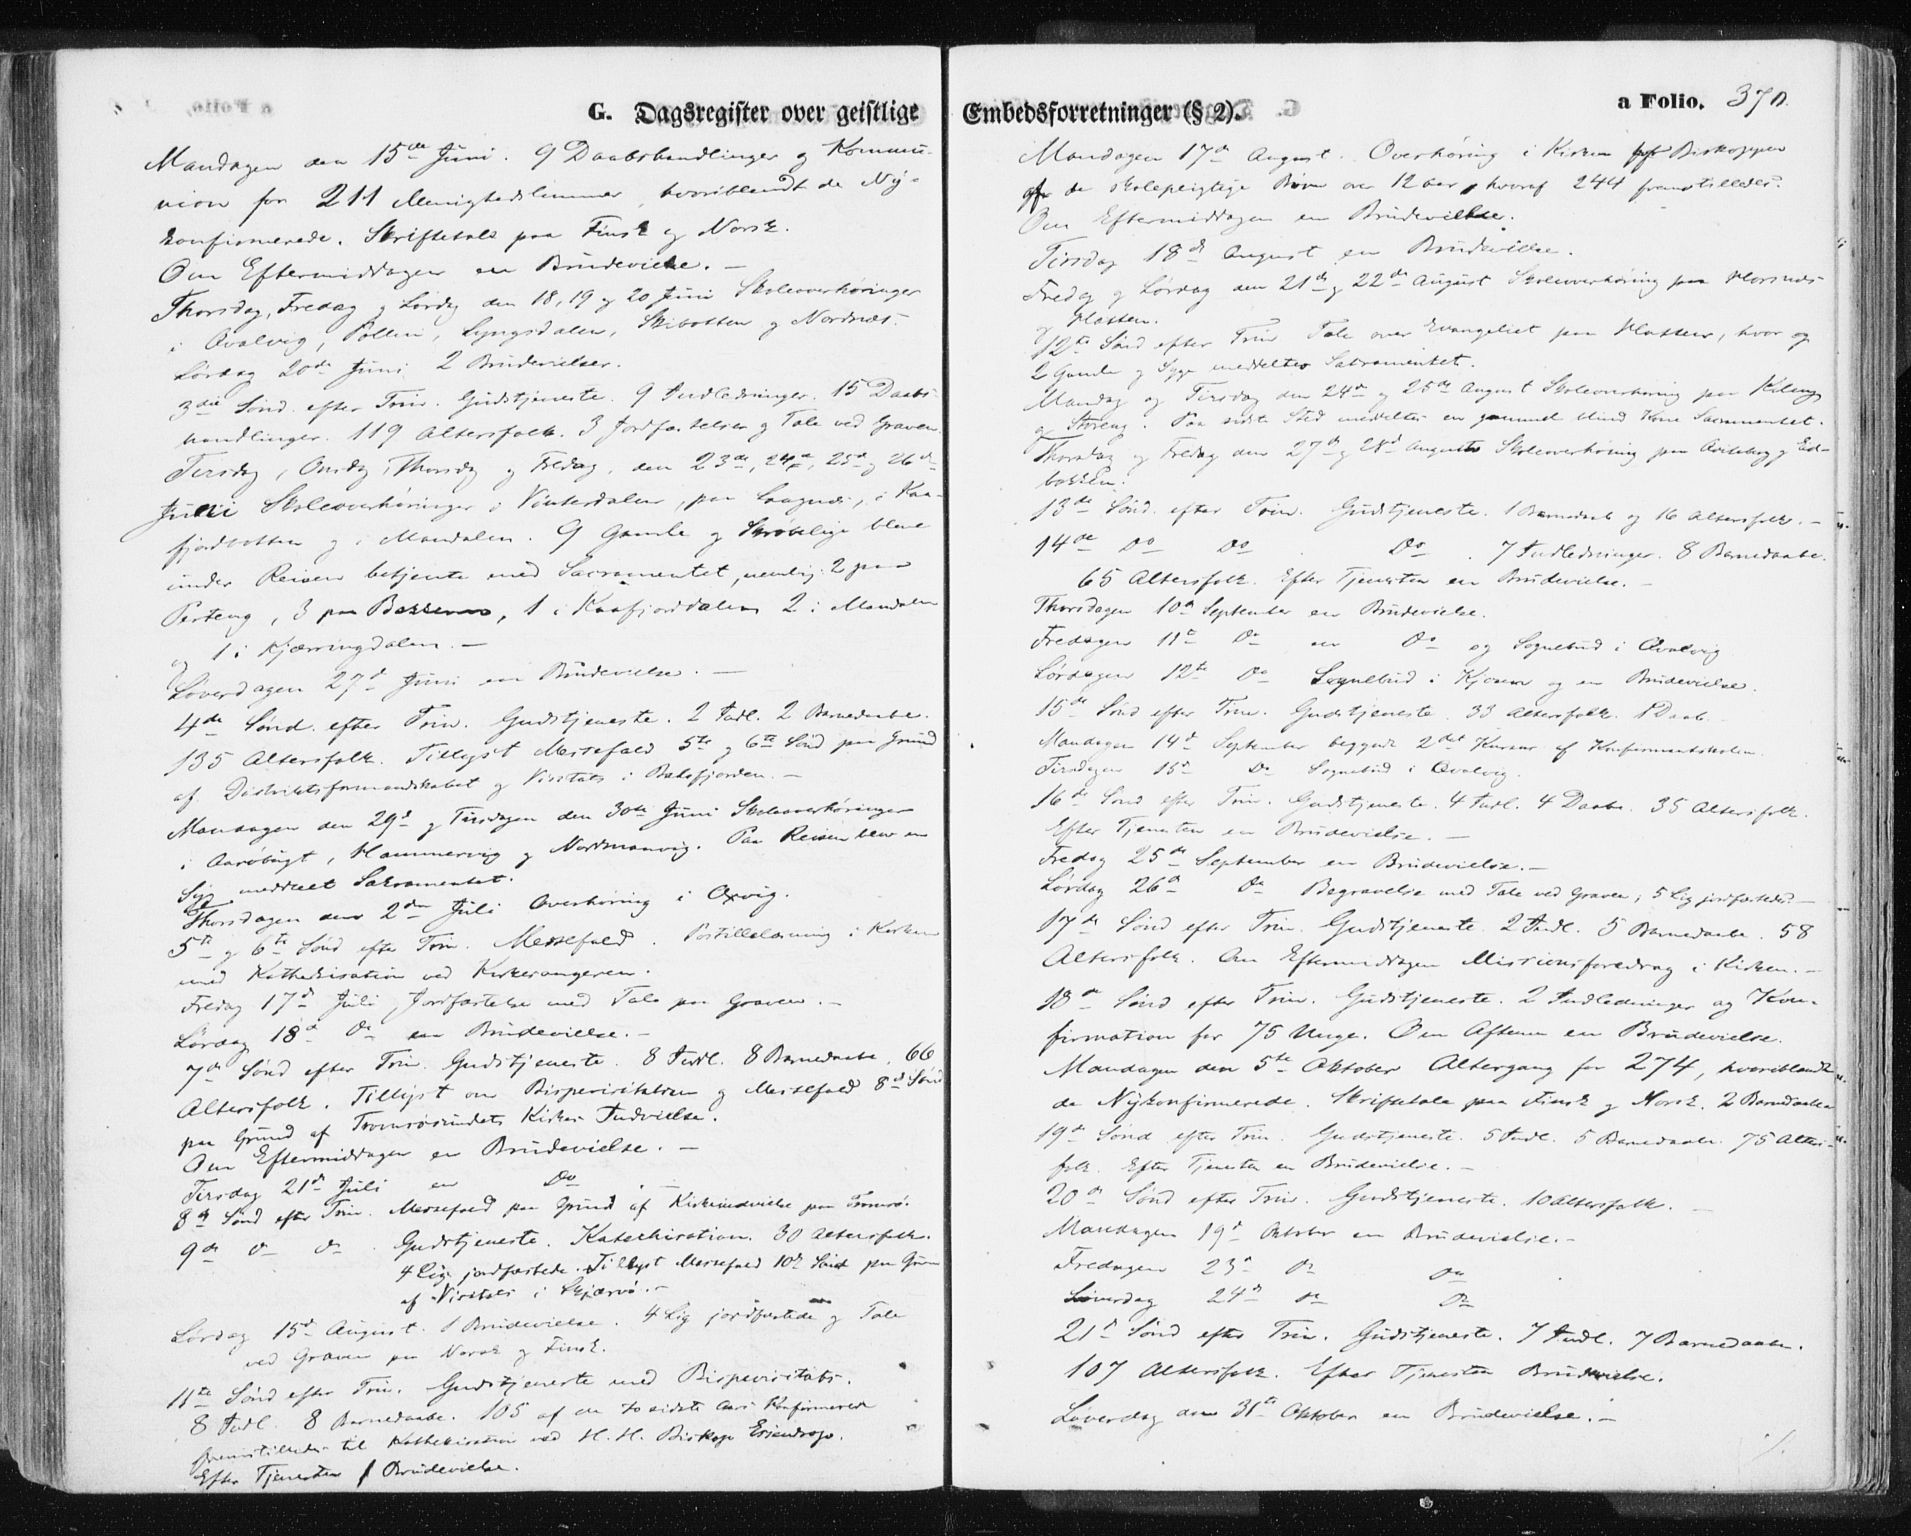 G. Dagsregister over geistlige
Mandagen den 15de Juni. 9 Daabshandlinger og Kommu-
nion for 211 Menighedslemmer, hvoriblandt de Ny-
konfirmerede. Skriftetale paa Finsk og Norsk.
Om Eftermiddagen en Brudevielse. —
Thorsdag, Fredag og Lørdag den 18, 19 og 20 Juni Skoleoverhøringer
i Qvalvig, Pollen, Lyngsdalen, Skibotten og Nordnæs.
Lørdag 20de Juni 2 Brudevielser.
3die Sønd. efter Trin. Gudstjeneste. 9 Indledninger. 15 Daabs-
handlinger. 119 Altersfolk. 3 Jordfæstelser og Tale ved Graven.
Tirsdag, Onsdag, Thorsdag og Fredag, den 23de, 24de, 25de og 26de
Juni Skoleoverhøringer i Vinterdalen, paa Langnæs, i Kaa-
fjordbotten og i Mandalen. 9 Gamle og Skrøbelige bleve
under Reisen betjente med Sacramentet, nemlig: 2 paa
Perteng, 3 paa, 1 i Kaafjorddalen 2 i Mandalen
og 1 i Kjærringdalen. —
Løverdagen 27d Juni en Brudevielse. —
4de Sønd. efter Trin. Gudstjeneste. 2 Indl. 2 Barnedaabe.
135 Altersfolk. Tillyst Messefald 5te og 6te Sønd paa Grund
af Distriktsformandskabet og Visitats i Balsfjorden. —
Mandagen den 29d og Tirsdagen den 30te Juni Skoleoverhøringer
i Aarøbugt, Hammervig og Nordmanvig. Paa Reisen blev en
Syg meddelt Sakramentet.
Thorsdagen den 2den Juli Overhøring i Oxvig.
5te og 6te Sønd efter Trin. Messefald. Postillelæsning i Kirken
med Kathekisation ved Kirkesangeren.
Fredag 17d Juli Jordfæstelse med Tale paa Graven. —
Lørdag 18d Do en Brudevielse. —
7de Sønd efter Trin. Gudstjeneste. 8 Indl. 8 Barnedaabe. 66
Altersfolk. Tillyst om Bispevisitatsen og Messefald 8d Sønd
paa Grund af Tromsøsundets Kirkes Indvielse.
Om Eftermiddagen en Brudevielse. —
Tirsdag 21de Juli en Do. —
8de Sønd efter Trin. Messefald paa Grund af Kirkeindvielse paa Tromsø.
9de Do Do. Gudstjeneste. Katechisation. 30 Altersfolk.
4 Lig jordfæstede. Tillyst Messefald 10de Sønd paa Grund
af Visitats i Skjærvø. —
Lørdag 15d August. 1 Brudevielse. 4 Lig jordfæstede og Tale
ved Graven paa Norsk og Finsk.
11te Sønd efter Trin. Gudstjeneste med Bispevisitats.
8 Indl. 8 Barnedaabe. 105 af de to sidste Aars Konfirmerede
fremstilledes til Kathekisation ved H. H. Biskop Essendrop.
Efter Tjenesten 1 Brudevielse.
Embedsforretninger (§ 2).
a Folio. 370.
Mandagen 17de August. Overhøring i Kirken for Biskoppen
af de skolepligtige Børn over 12 Aar, hvoraf 244 fremstilledes.
Om Eftermiddagen en Brudevielse.
Tirsdag 18d August en Brudevielse.
Fredag og Lørdag den 21de og 22de August Skoleoverhøring paa Horsnes
og Hatten.
12te Sønd efter Trin Tale over Evangeliet paa Hatten, hvor og
2 Gamle og Syge meddeltes Sakramentet.
Mandag og Tirsdag den 24de og 25de August Skoleoverhøring paa Kileng
og Storeng. Paa sidste Sted meddeltes en gammel blind Kone Sacramentet.
Thorsdag og Fredag den 27de og 28d August Skoleoverhøring paa og Eid-
bakken.
13de Sønd. efter Trin. Gudstjeneste. 1 Barnedaab og 16 Altersfolk. —
14de Do Do Do. 7 Indledninger. 8 Barnedaabe.
65 Altersfolk. Efter Tjenesten en Brudevielse. —
Thorsdagen 10d September en Brudevielse.
Fredagen 11te Do en Do og Sognebud i Qvalvig
Lørdagen 12te Do Sognebud i Kjosen og en Brudevielse.
15de Sønd efter Trin. Gudstjeneste. 33 Altersfolk. 1 Daab.
Mandagen 14d September begyndt 2det Kursus af Konfirmantskolen.
Tirsdagen 15d Do Sognebud i Qvalvig.
16de Sønd efter Trin. Gudstjeneste. 4 Indl. 4 Daabe. 35 Altersfolk.
Efter Tjenesten en Brudevielse. —
Fredag 25de September en Brudevielse. —
Lørdag 26d Do Begravelse med Tale ved Graven; 5 Lig jordfæstedes —
17de Sønd efter Trin. Gudstjeneste. 2 Indl. 5 Barnedaabe. 58
Altersfolk. Om Eftermiddagen Missionsforedrag i Kirken. —
18de Sønd efter Trin. Gudstjeneste. 2 Indledninger og Kon-
firmation for 75 Unge. Om Aftenen en Brudevielse.
Mandagen den 5te Oktober Altergang for 274, hvoriblandt
de Nykonfirmerede. Skriftetale paa Finsk og Norsk. 2 Barnedaabe
19de Sønd efter Trin. Gudstjeneste. 5 Indl. 5 Barnedaabe. 75 Alters-
folk. Efter Tjenesten en Brudevielse. —
20de Sønd efter Trin. Gudstjeneste. 10 Altersfolk. —
Mandagen 19d Oktober en Brudevielse. —
Fredagen 23d Do Do
Løverdag 24d Do Do
21d Sønd efter Trin. Gudstjeneste. 7 Indl. 7 Barnedaabe.
107 Altersfolk. Efter Tjenesten Brudevielse.
Løverdag den 31te Oktober en Brudevielse. —